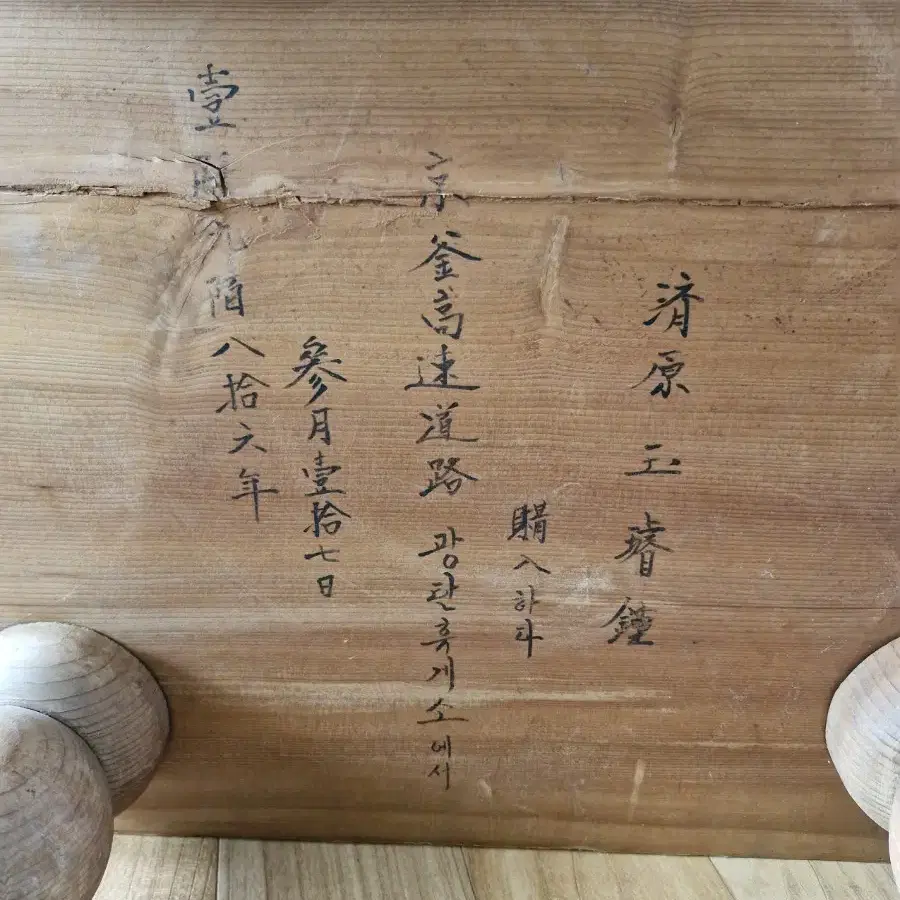 壹九陌八拾六年
參月壹拾七日
京釜高速道路 광탄휴게소에서
購入하다
淸原 玉 璿 鍾